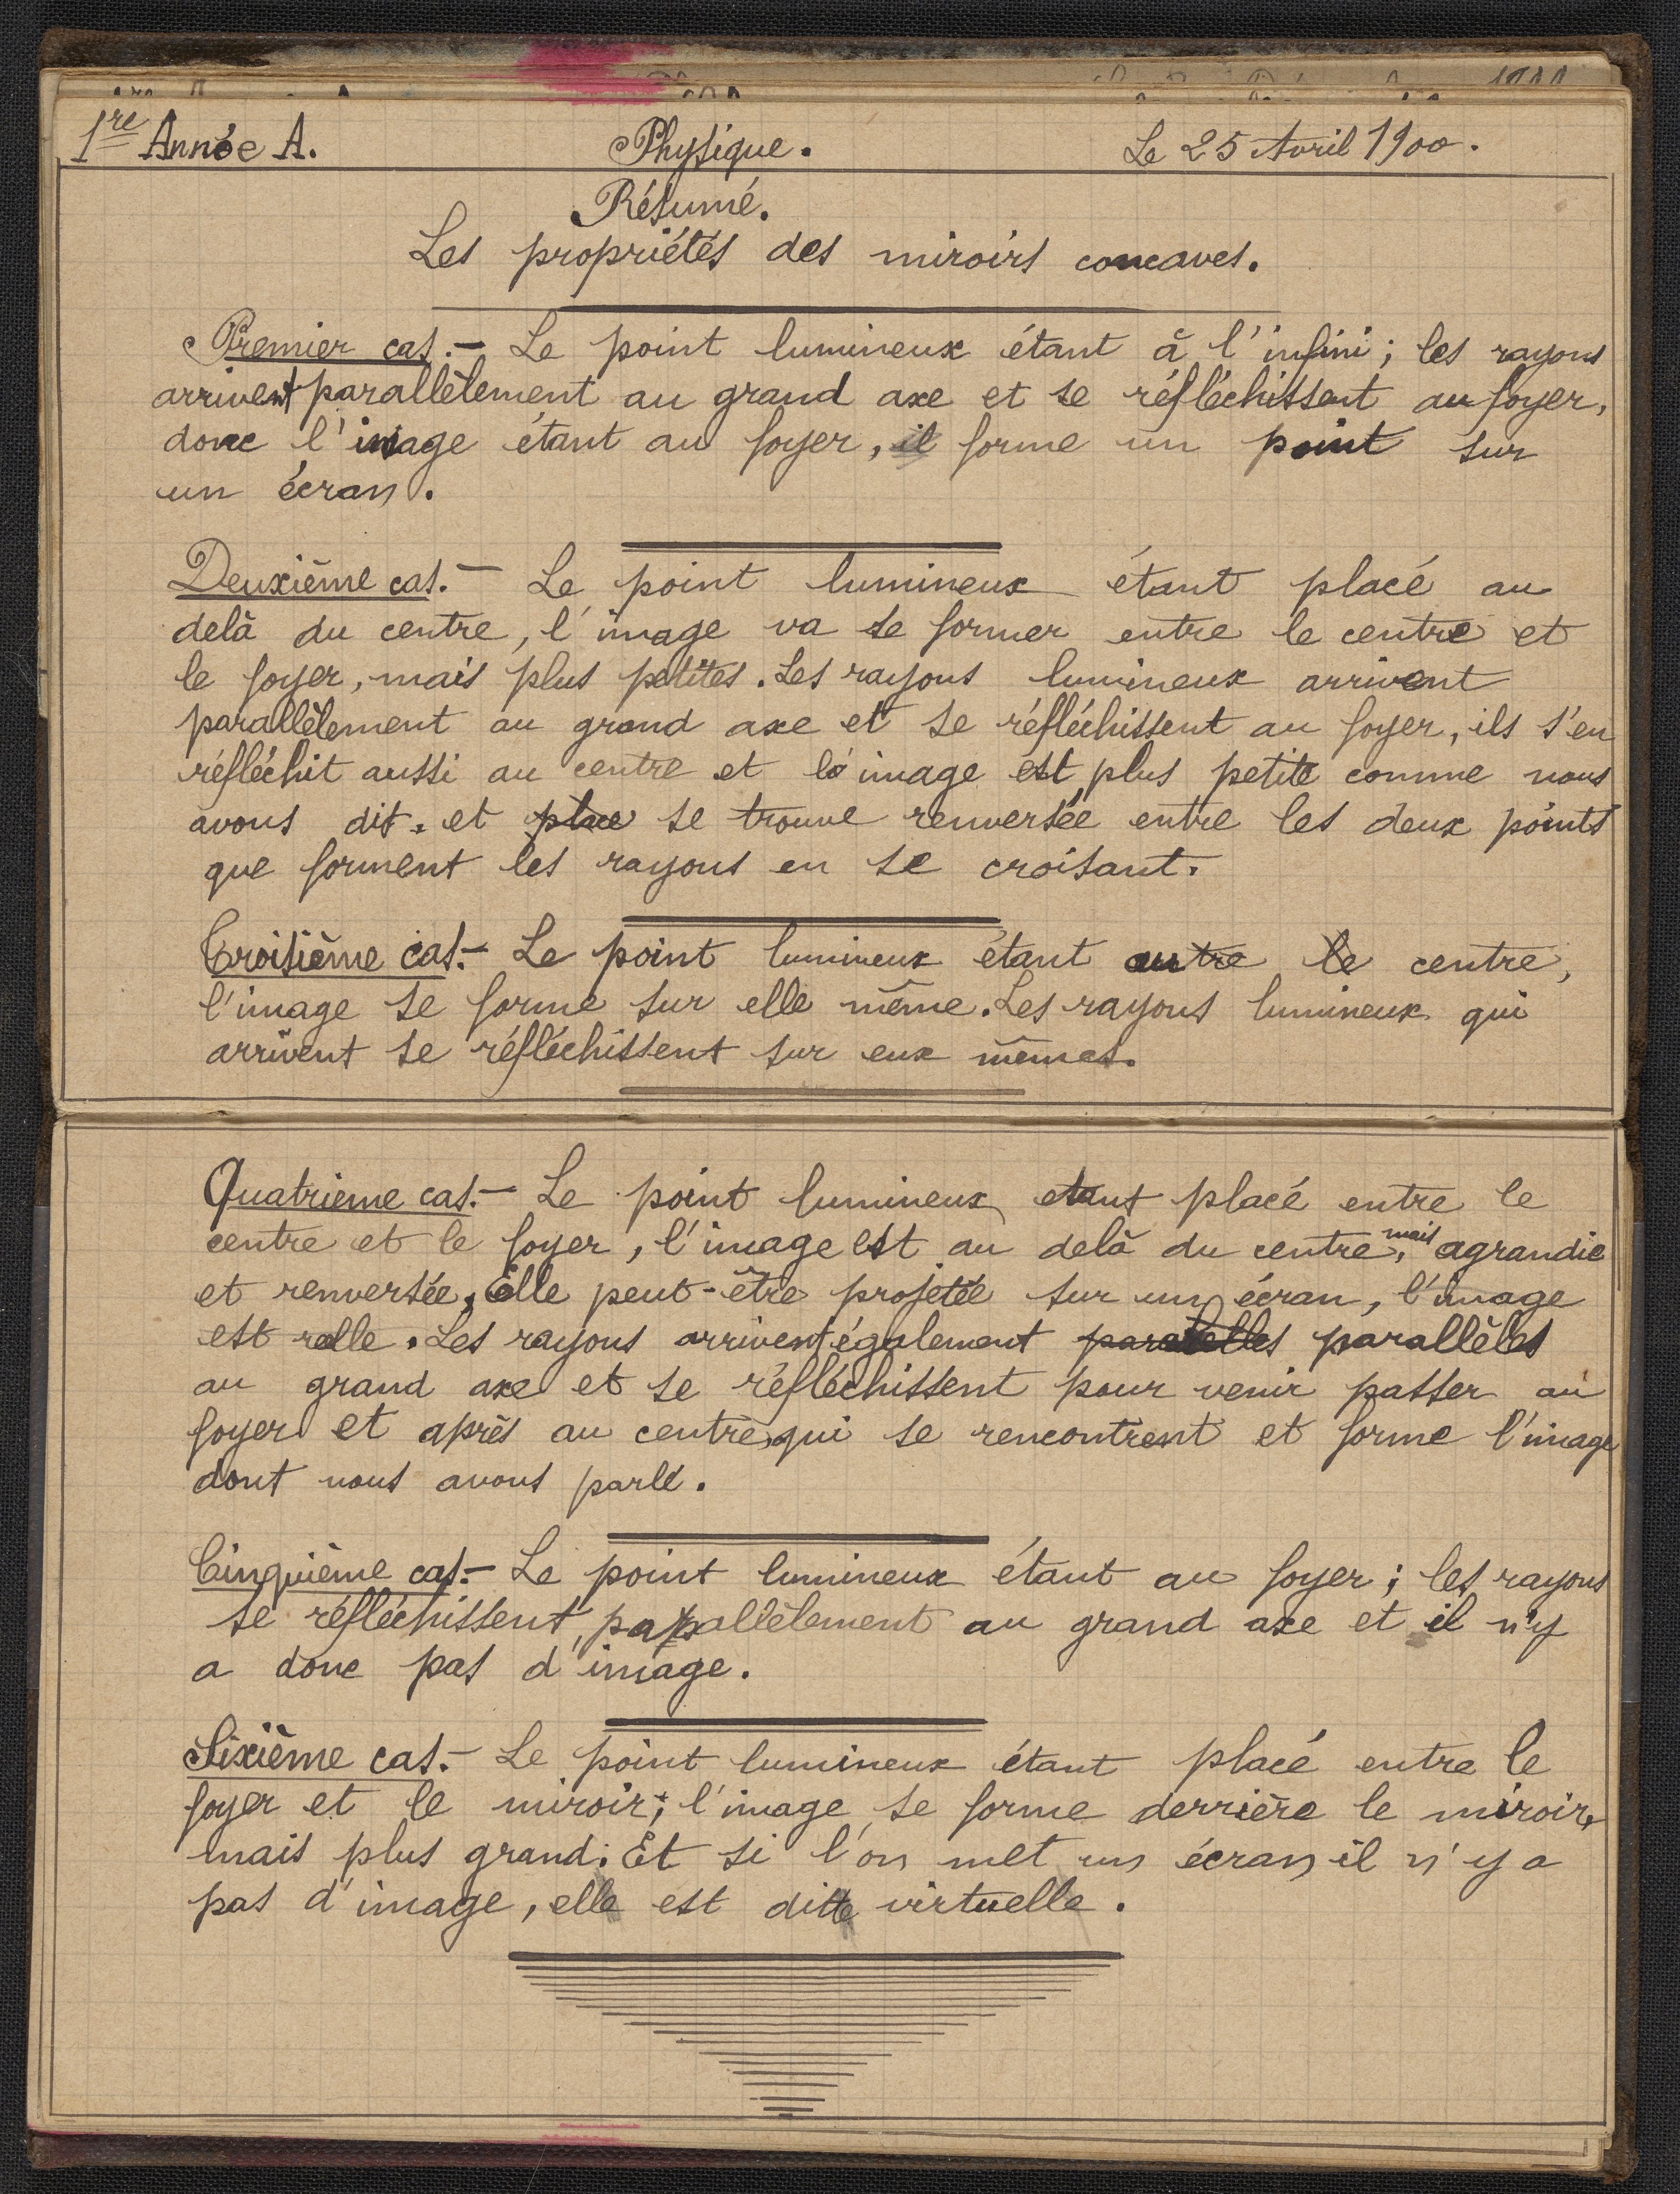 1re Année A. Physique. Le 25 Avril 1900.
Résumé.
Les propriétés des miroirs concaves.
Premier cas.- Le point lumineux étant à l'infini; les rayons
arrivent parallèlement au grand axe et se réfléchissent au foyer,
donc l'image étant au foyer, il forme un point sur
un écran.
Deuxième cas.- Le point lumineux étant placé au
delà du centre, l'image va se former entre le centre et
le foyer, mais plus petites. Les rayons lumineux arrivent
parallèlement au grand axe et se réfléchissent au foyer, ils s'en
réfléchit aussi au centre et l'image est plus petite comme nous
avons dit, et place se trouve renversée entre les deux points
que forment les rayons en se croisant.
Troisième cas.- Le point lumineux étant autre le centre,
l'image se forme sur elle même. Les rayons lumineux qui
arrivent se réfléchissent sur eux mêmes.
Quatrieme cas.- Le point lumineux etant placé entre le
centre et le foyer, l'image est au delà du centre, mais agrandie
et renversée, Elle peut-être projetée sur un écran, l'image
est relle. Les rayons arrivent également paralelles parallèles
au grand axe et se réfléchissent pour venir passer au
foyer et après au centre, qui se rencontrent et forme l'image
dont nous avons parlé.
Cinquième cas.- Le point lumineux étant au foyer; les rayons
se réfléchissent, parallèlement au grand axe et il n'y
a donc pas d'image.
Sixième cas.- Le point lumineux étant placé entre le
foyer et le miroir; l'image se forme derrière le miroir,
mais plus grand. Et si l'on met un écran il n'y a
pas d'image, elle est ditte virtuelle.